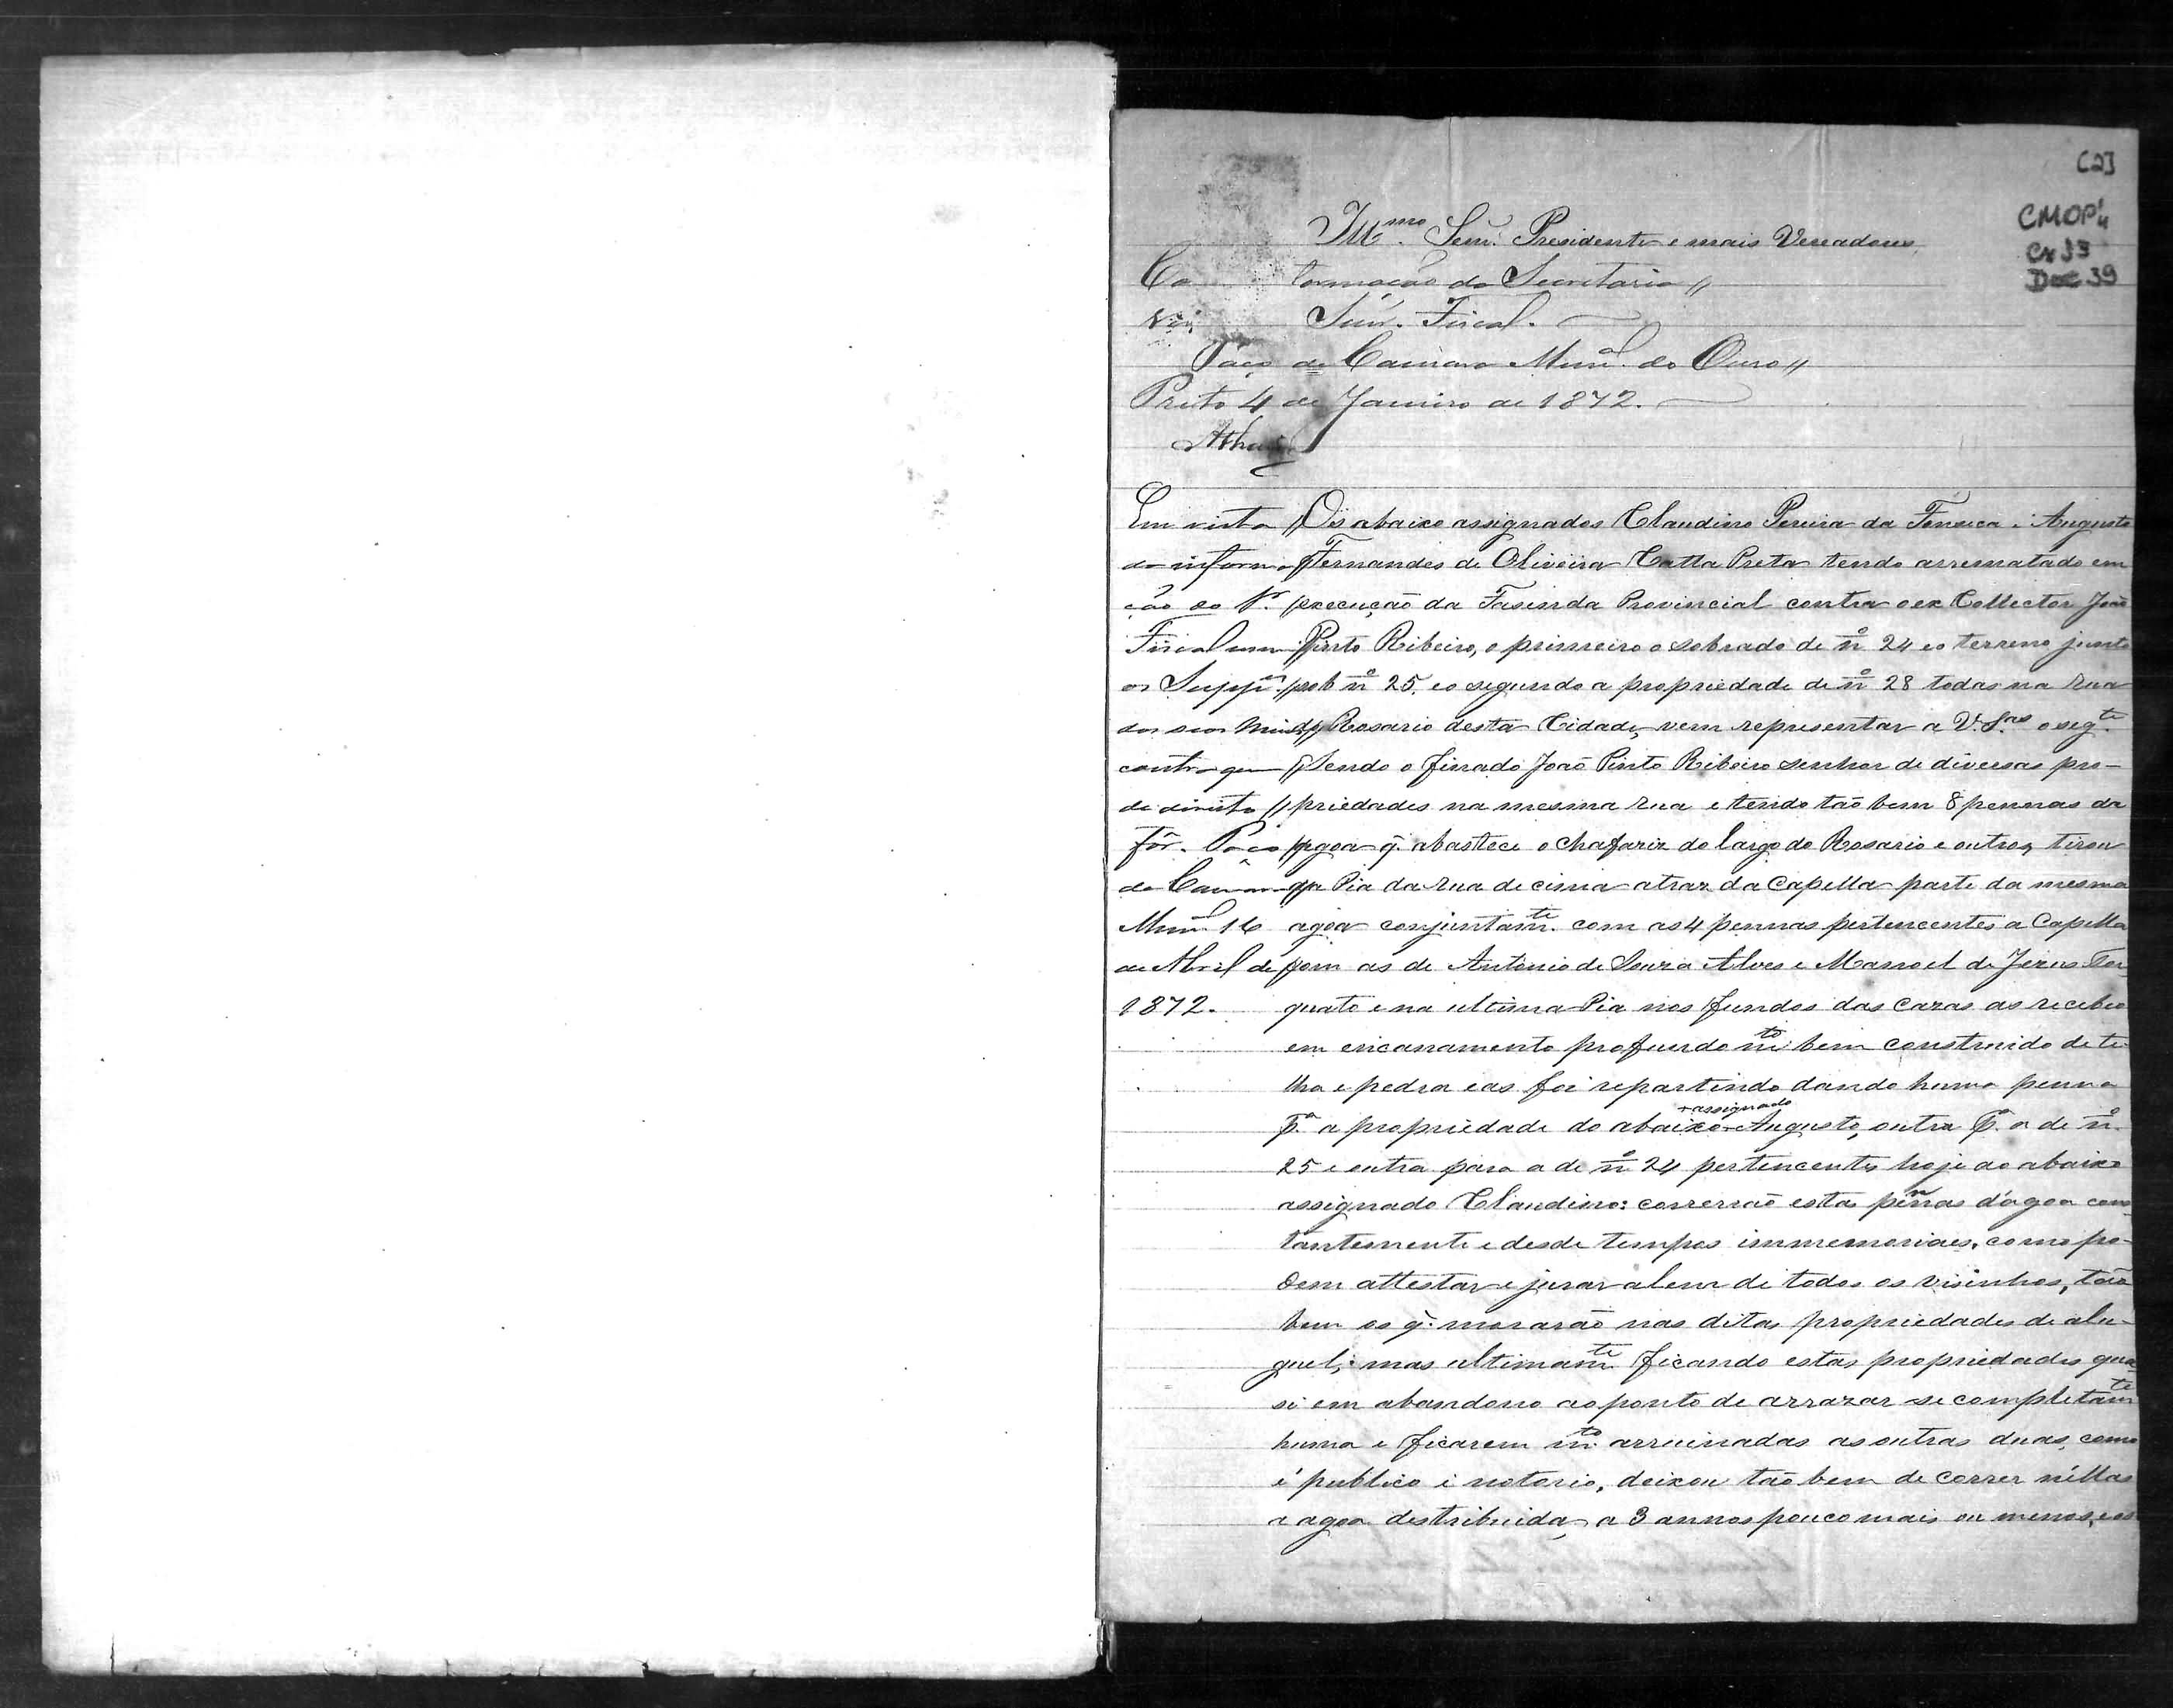 [2]
CMOP
Cx 93
Doc 39
Ill.mo Senr. Presidente e mais Vereadores
formação do Secretario //
Snr. Fiscal.
Paço da Camara Munal. do Ouro //
Preto 4 de Janeiro de 1872.
Em vista
da informa
ção do Sr.
Fiscal
os Suppes.
dos seos
contra quem
de direito //
fôr. Paço
da Camara
Munal. 16
de Abril de
1872.
Os abaixo assignados Claudino Pereira da Fonseca e Augusto
Fernandes de Oliveira Catta Preta tendo arrematado em
execução da Fasenda Provincial contra o ex Collector João
Pinto Ribeiro, o primeiro o sobrado de nº 24 eo terreno junto
sob nº 25, eo segundo a propriedade de nº 28 todas na rua
do Rosario desta Cidade, vem representar a V. S.as o seg.te
Sendo o finado João Pinto Ribeiro senhor de diversas pro-
priedades na mesma rua e tendo tão bem 8 pennas da
agoa q. abastece o chafariz do largo do Rosario e outros, tirou
da Pia da rua de cima atraz da Capella parte da mesma
agoa conjuntam.te com as 4 pennas pertencentes a Capella
com as de Antonio de Souza Alves e Manoel de Jezus Tor-
quato e na ultima Pia nos fundos das cazas as recebeo
em encanamento profundo m.to bem construido de te-
lha e pedra eas foi repartindo dando huma penna
p.a a propriedade do abaixo +assignado Augusto, outra p.a a de nº
25 e outra para a de nº 24 pertencentes hoje ao abaixo
assignado Claudino: correrão estas pennas d'agoa cons-
tantemente e desde tempos immemoriaes, como po-
dem attestar e jurar alem de todos os visinhos, tão
bem os q. morarão nas ditas propriedades de alu-
guel; mas ultimam.te ficando estas propriedades qua-
si em abandono ao ponto de arrazar se completam.te
huma e ficarem m.to arruinadas as outras duas, como
é publico e notorio, deixou tão bem de correr n'ellas
a agoa destribuida, a 3 annos pouco mais ou menos, eos